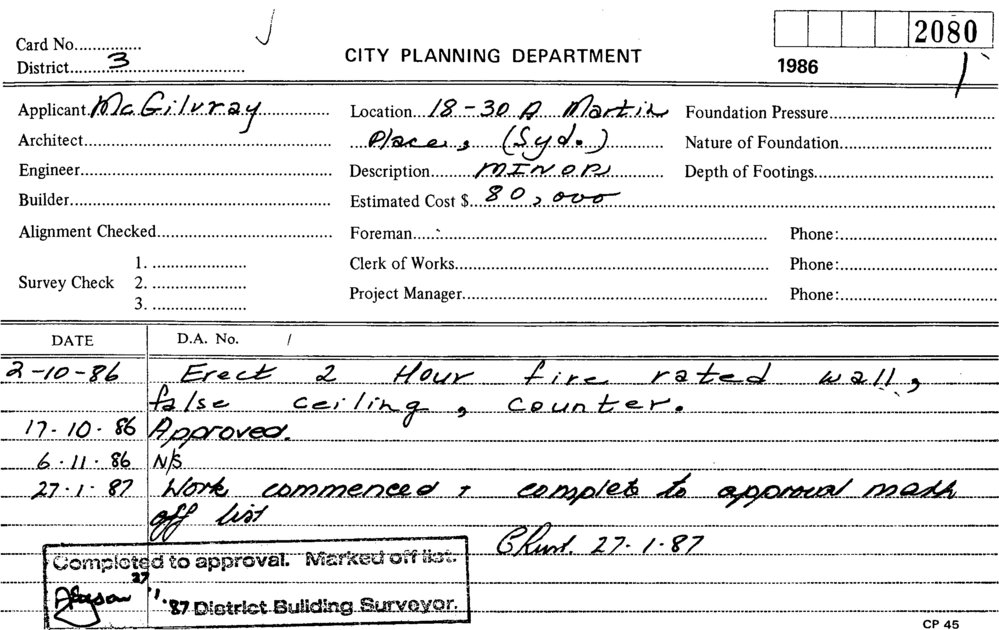 Card No...............
2080
District...3...
CITY PLANNING DEPARTMENT
1986
Applicant. McGilvray
Location... 18-30A Martin
Foundation Pressure
Architect
Place, (Syd.)
Nature of Foundation
Engineer
Description... MINOR
Depth of Footings
Builder
Estimated Cost $.. 80,000
Alignment Checked
Foreman
Phone:
Survey Check 1.
2.
3.
Clerk of Works
Phone:
Project Manager
Phone:
DATE D.A. No. /
2-10-86 Erect 2 Hour fire rated wall,
false ceiling, counter.
17-10-86 Approved.
6-11-86 N/S
27-1-87 Work commenced + complete to approval mark
off list
27-1-87
Completed to approval. Marked off list.
27
1. '87 District Building Surveyor.
CP 45